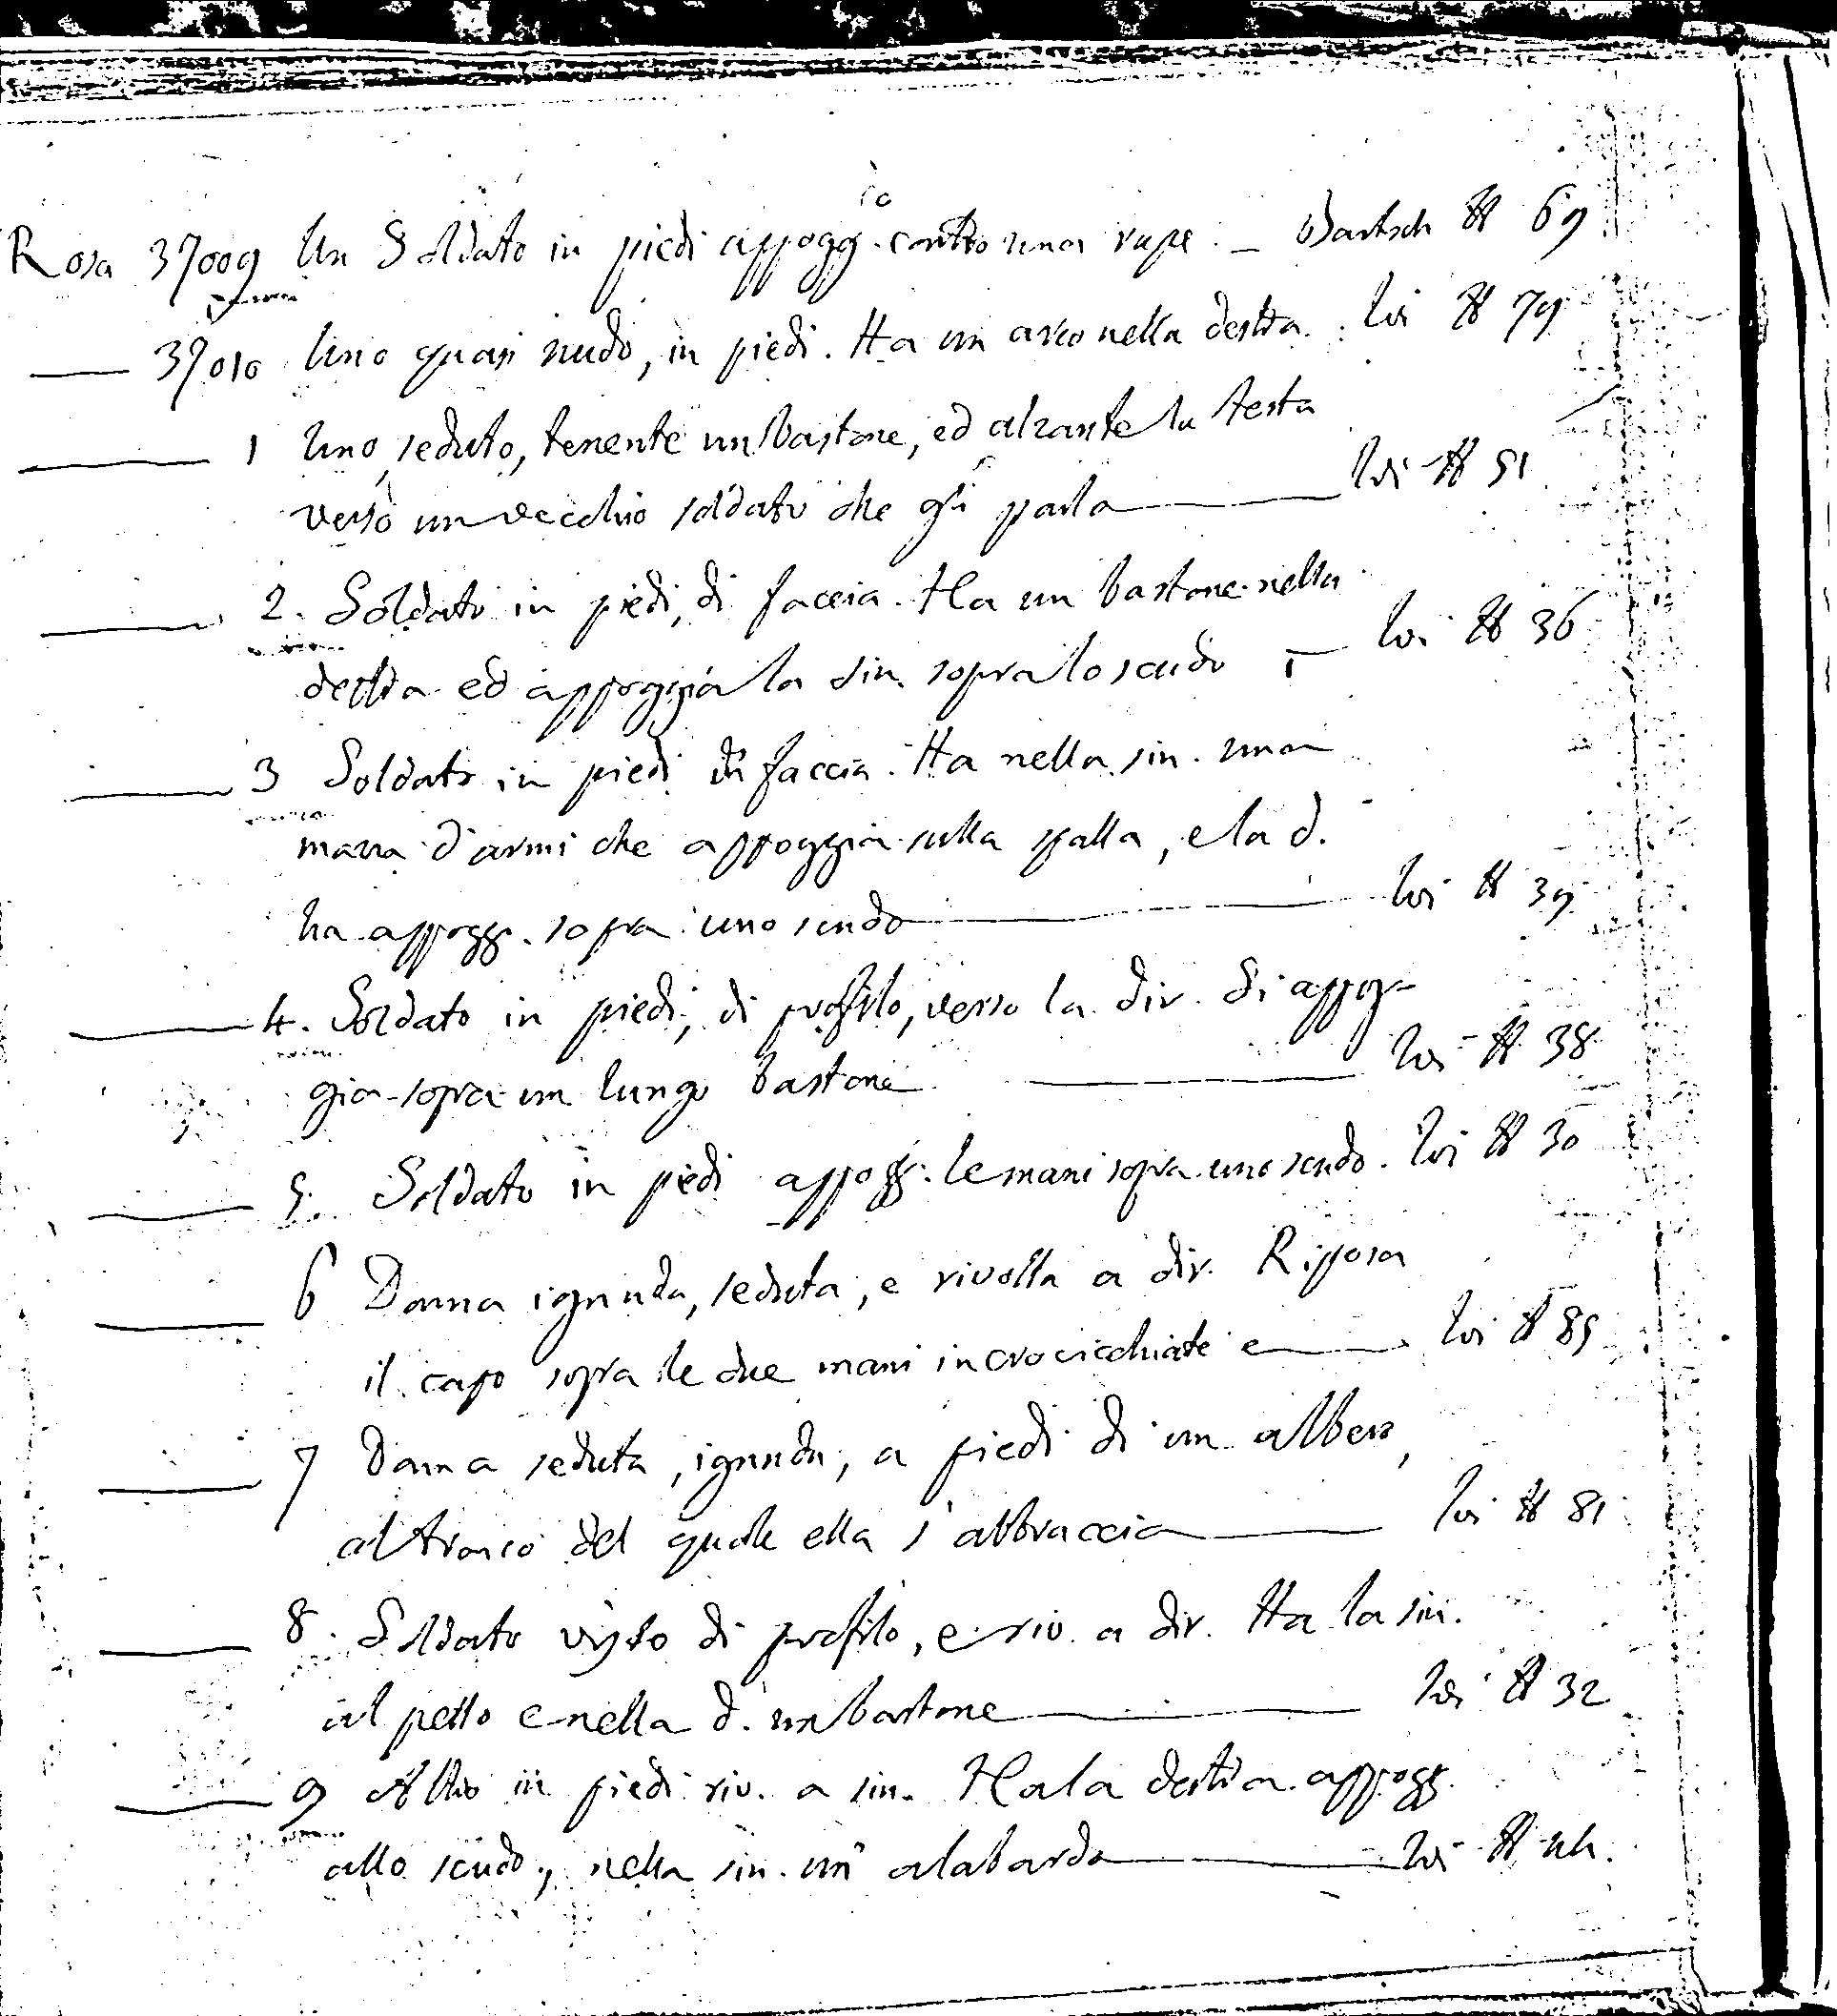 Rosa 37009 Un Soldato in piedi appogg.io contro una rupe. — Bartsch # 69
—— 37010 Uno quasi nudo, in piedi. Ha un arco nella destra. Ivi # 79
—— 1 Uno, seduto, tenente un bastone, ed alzante la testa
verso un vecchio soldato che gli parla —— Ivi # 51
—— 2. Soldato in piedi, di faccia. Ha un bastone nella
destra ed appoggia la sin. sopra lo scudo — Ivi # 36
—— 3 Soldato in piedi di faccia. Ha nella sin. una
mazza d'armi che appoggia sulla spalla, e la d.
ha appogg. sopra uno scudo —— Ivi # 39
—— 4. Soldato in piedi, di profilo, verso la dir. Si appog-
gia sopra un lungo bastone —— Ivi # 38
—— 5. Soldato in piedi appogg. le mani sopra uno scudo. Ivi # 30
—— 6 Donna ignuda, seduta, e rivolta a dir. Riposa
il capo sopra le due mani incrocicchiate —— Ivi # 85
—— 7 Donna seduta, ignuda, a piedi di un albero,
al tronco del quale ella s'abbraccia —— Ivi # 81
—— 8. Soldato visto di profilo, e riv. a dir. Ha la sin.
al petto e nella d. un bastone —— Ivi # 32
—— 9 Altro in piedi riv. a sin. Ha la destra appogg.
allo scudo, nella sin. un'alabarda —— Ivi #